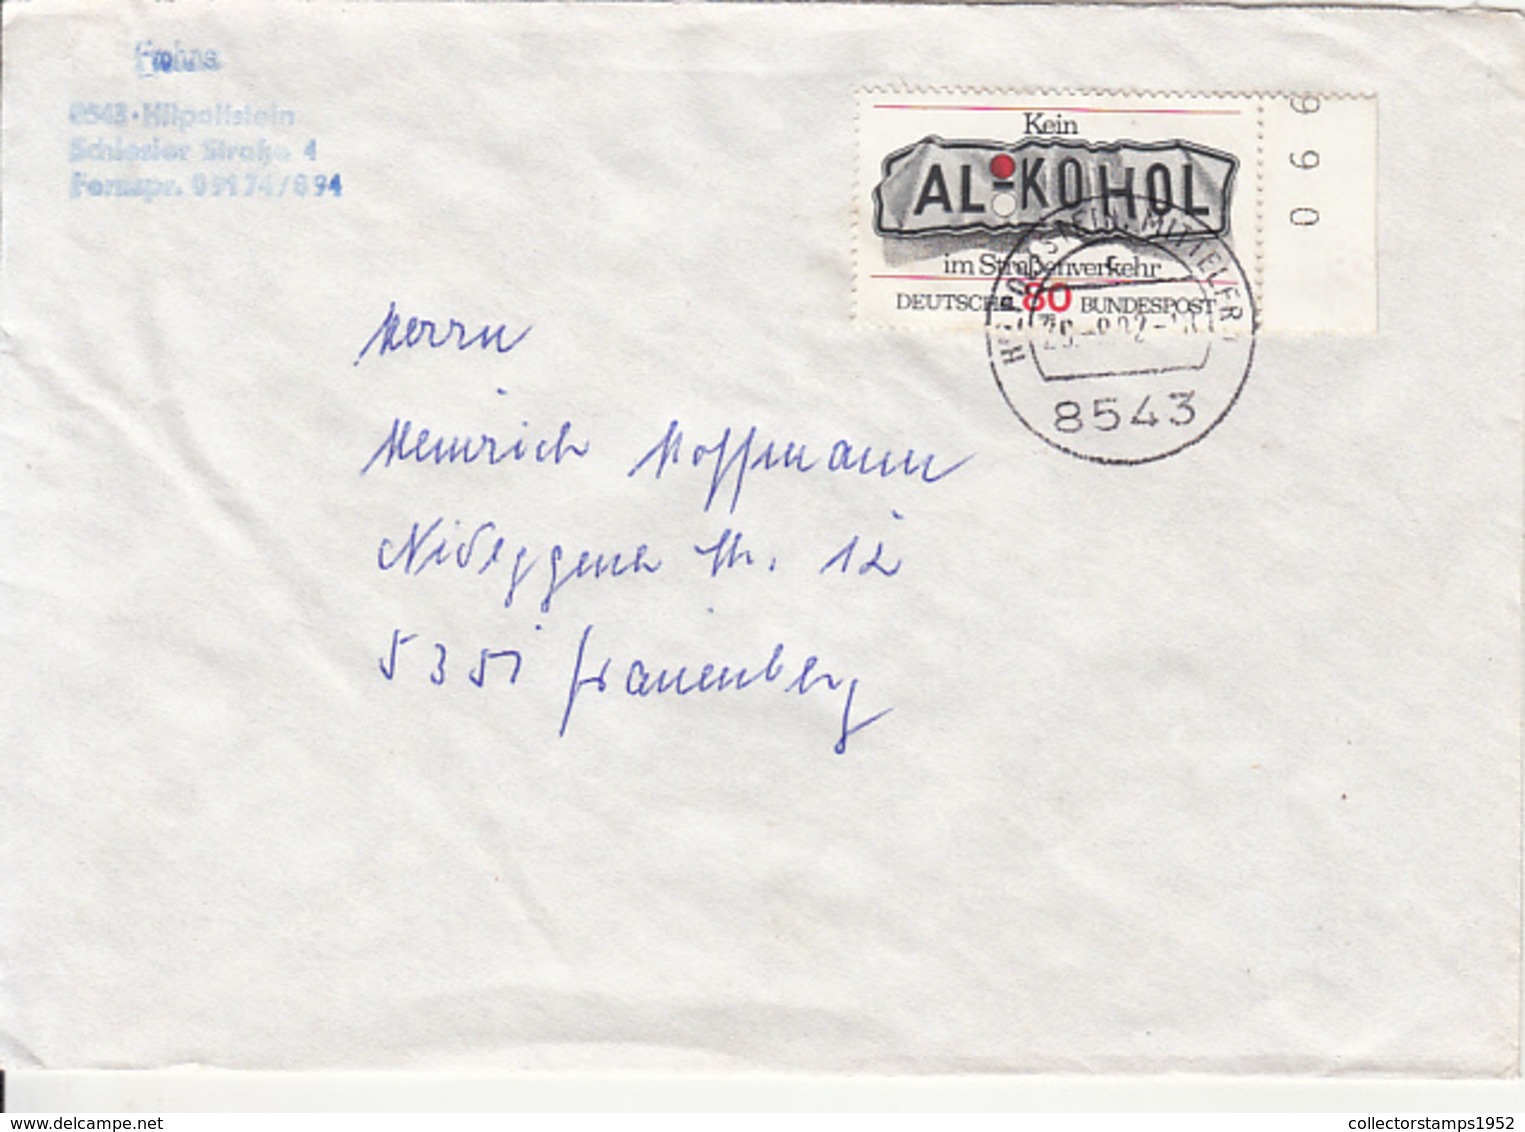 Frohns
8543·Hilpoltstein
Schlesier Straße 4
Fernspr. 09174/894
066
Kein
AL-KOHOL
im Straßenverkehr
DEUTSCHE 80 BUNDESPOST
HILPOLTSTEIN, MITTELFR
c
8543
Herrn
Heinrich Hoffmann
Nideggener Str. 12
5351 Frauenberg
delcampe.net
collectorstamps1952